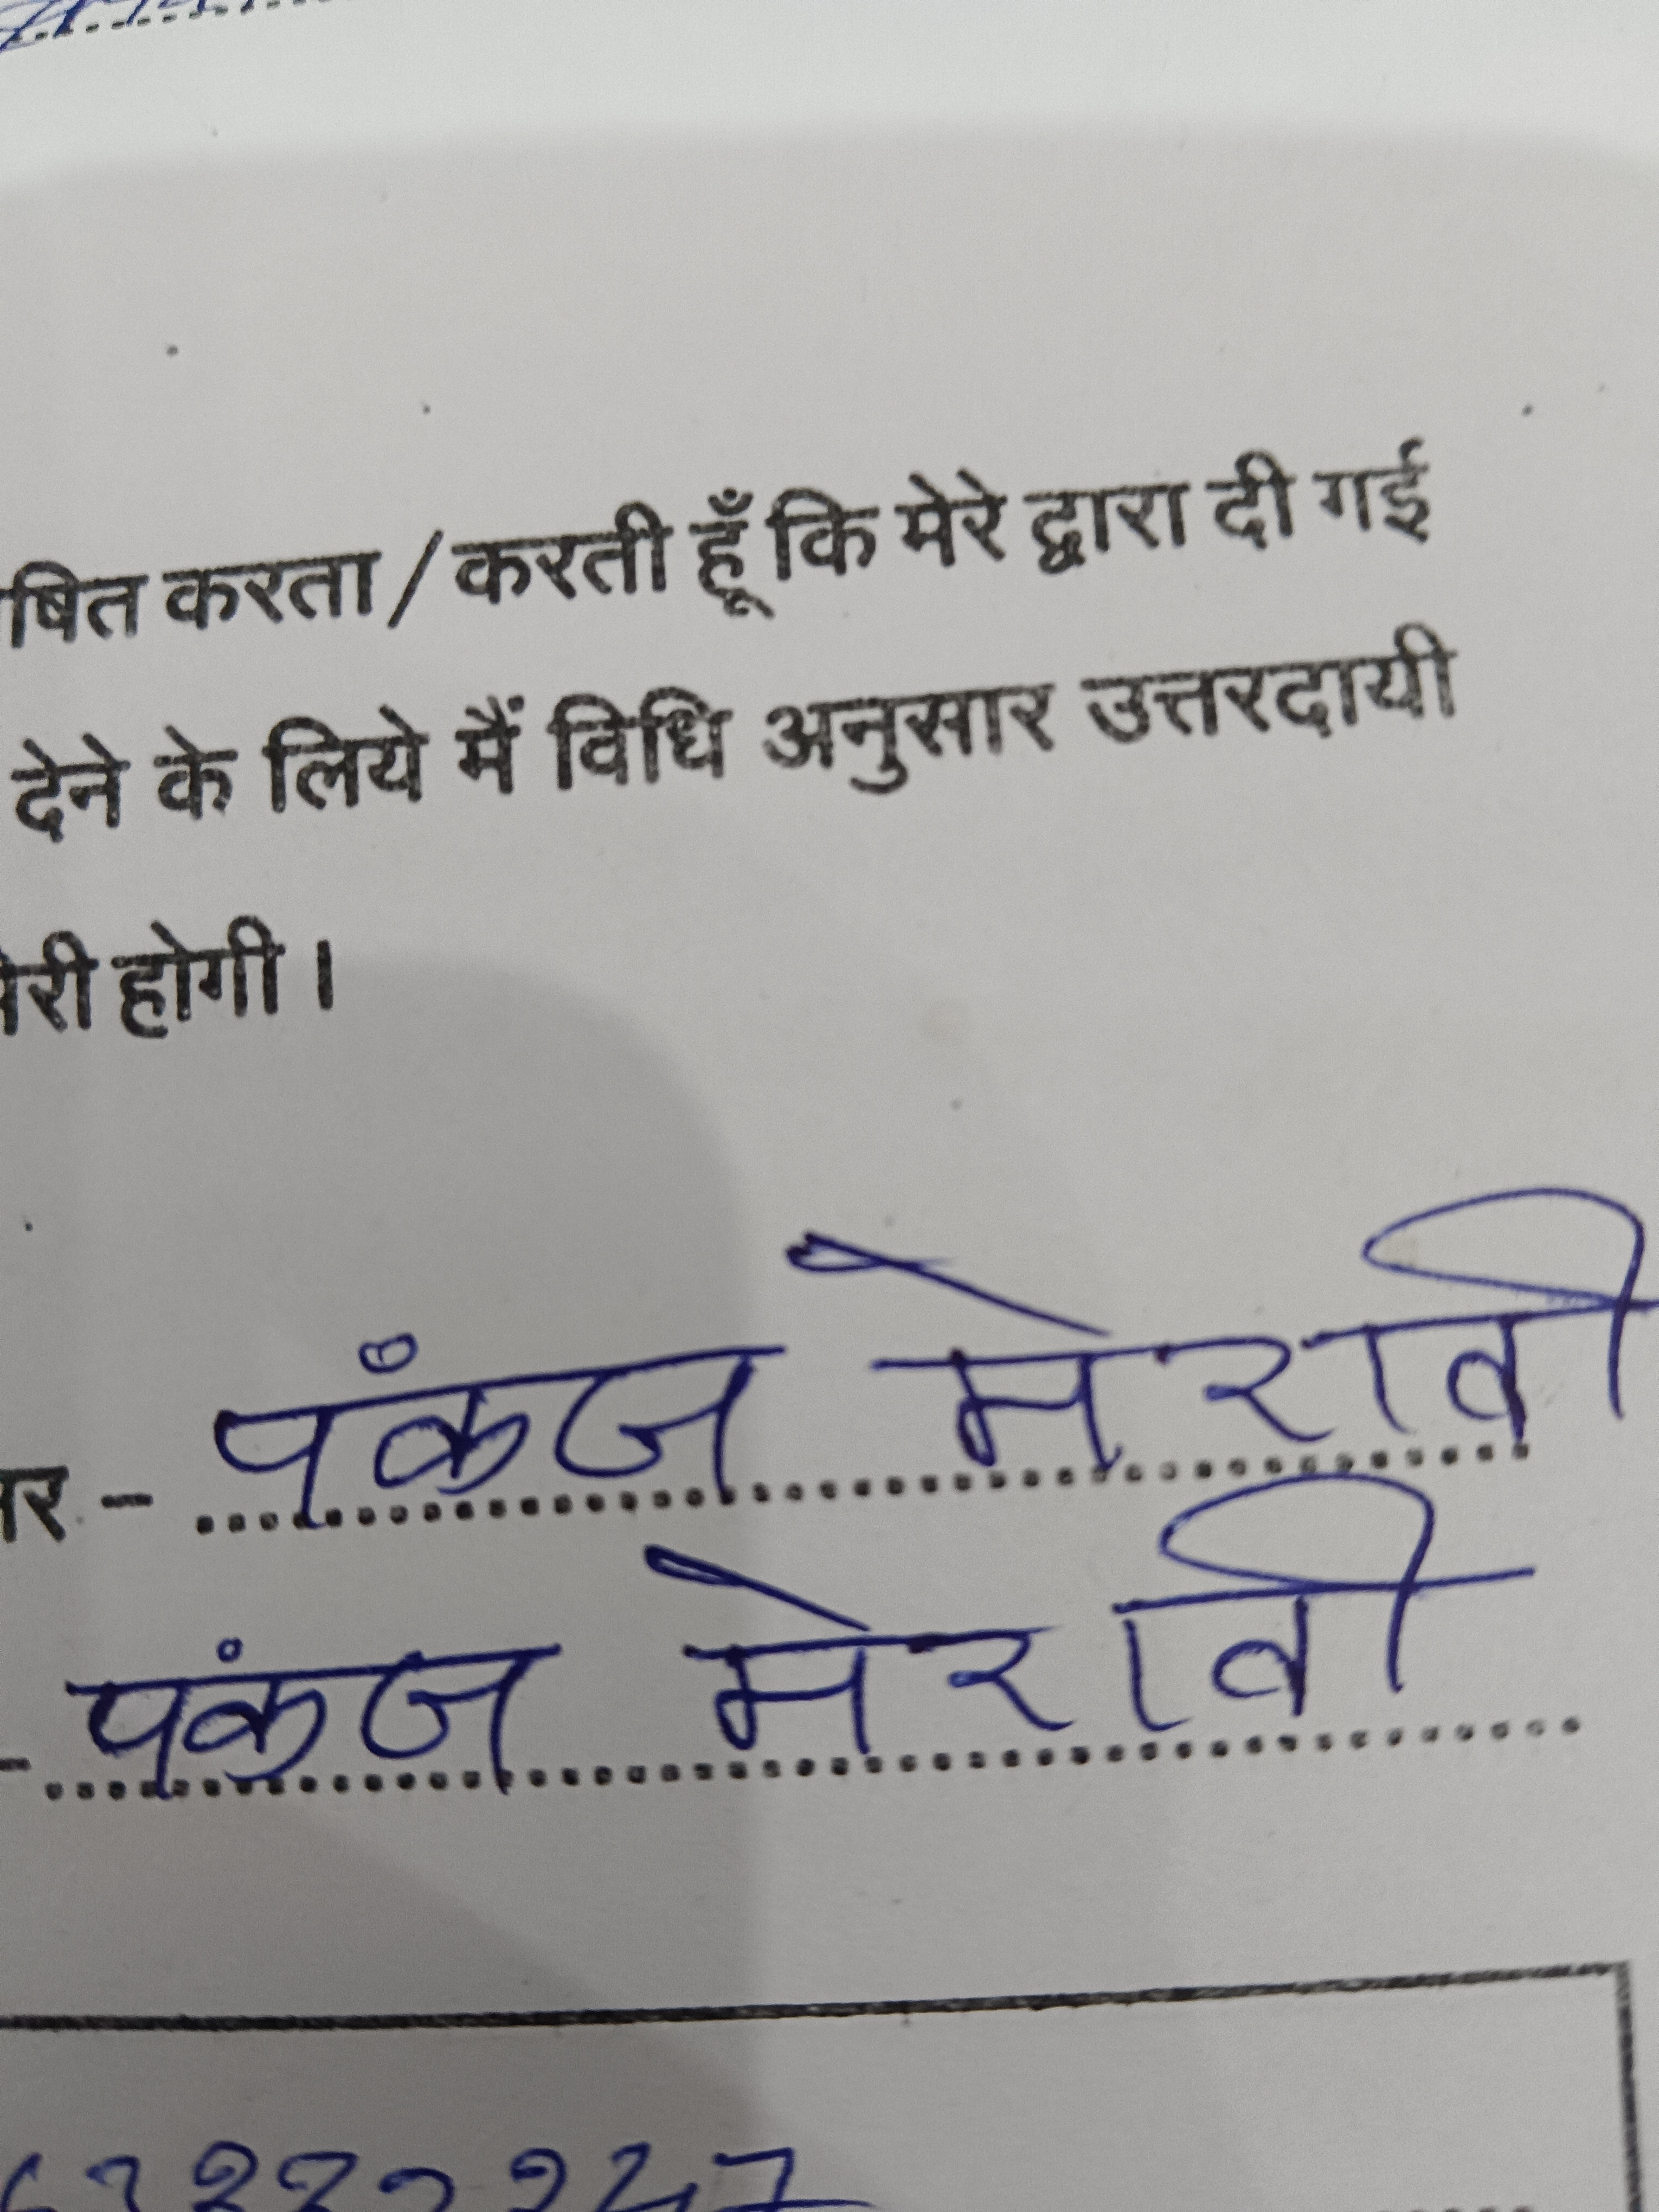 षित करता/करती हूँ कि मेरे द्वारा दी गई
देने के लिये मैं विधि अनुसार उत्तरदायी
होगी।
पंकज मेरावी
पंकज मेरावी